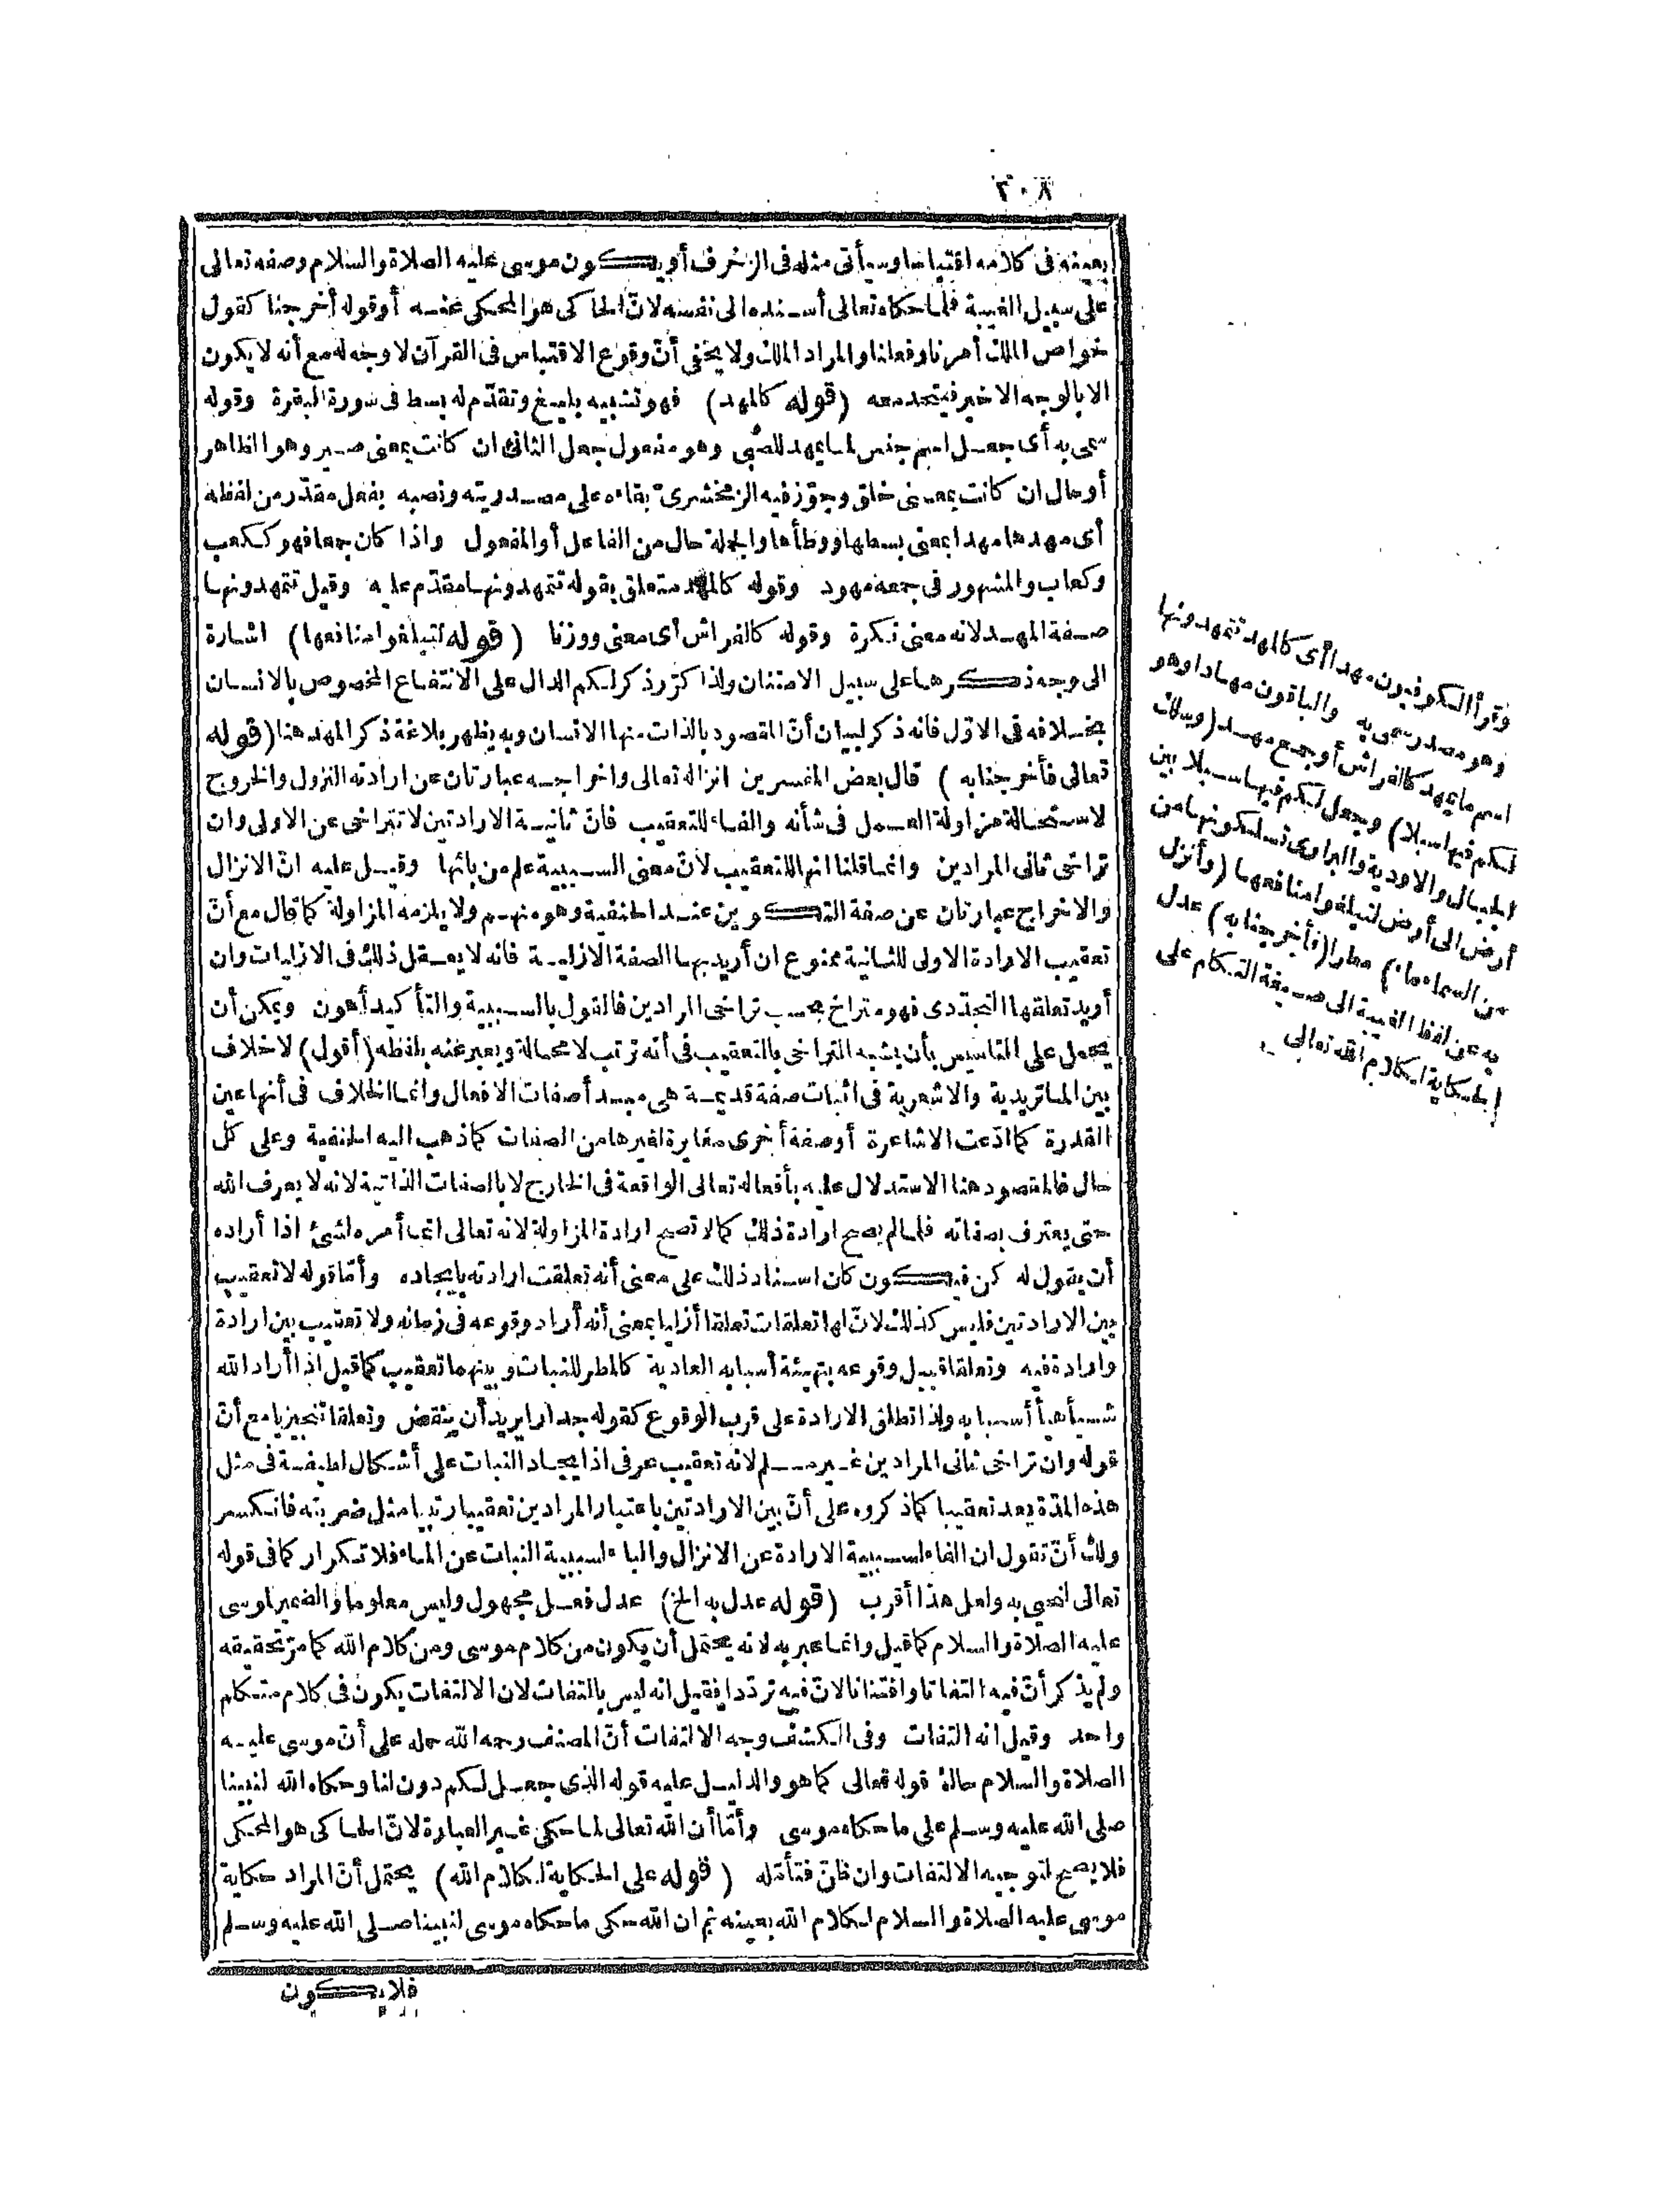 ٢٠٨
بعينه في كلامه اقتباسا وسيأتي مثله في الزخرف أو يكون موسى عليه الصلاة والسلام وصفه تعالى
على سبيل الغيبة فلما حكاه تعالى أسنده الى نفسه لان الحاكى هو المحكى عنه أو قوله أخرجنا كقول
خواص الملك أمرنا وفعلنا والمراد الملك ولا يخفى أنّ وقوع الاقتباس في القرآن لا وجه له مع أنه لا يكون
الا بالوجه الاخير فيتحد معه (قوله كالمهد) فهو تشبيه بليغ وتقدّم له بسط في سورة البقرة وقوله
سمى به أى جعل اسم جنس لما يمهد للصبى وهو مفعول جعل الثانى ان كانت بمعنى صير وهو الظاهر
أو حال ان كانت بمعنى خلق وجوّز فيه الزمخشرىّ بقاءه على مصدريته ونصبه بفعل مقدّر من لفظه
أى مهدها مهدا بمعنى بسطها ووطأها والجملة حال من الفاعل أو المفعول واذا كان جمعا فهو ككعب
وكعاب والمشهور في جمعه مهود وقوله كالمهد متعلق بقوله تتمهدونها مقدّم عليه وقيل تتمهدونها
صفة المهد لانه معنى نكرة وقوله كالفراش أى معنى ووزنا (قوله لتبلغوا منافعها) اشارة
الى وجه ذكرها على سبيل الامتنان ولذا كرّر ذكر لكم الدال على الانتفاع المخصوص بالانسان
بخلافه فى الاوّل فانه ذكر لبيان أنّ المقصود بالذات منها الانسان وبه يظهر بلاغة ذكر المهد هنا (قوله
تعالى فأخرجنا به) قال بعض المفسرين انزاله تعالى واخراجه عبارتان عن ارادته النزول والخروج
لاستحالة مزاولة العمل في شأنه والفاء للتعقيب فانّ ثانية الارادتين لا تتراخى عن الاولى وان
تراخى ثانى المرادين وانما قلنا انها للتعقيب لانّ معنى السببية علم من بائها وقيل عليه انّ الانزال
والاخراج عبارتان عن صفة التكوين عند الحنفية وهو منهم ولا يلزمه المزاولة كما قال مع أنّ
تعقيب الارادة الاولى للثانية ممنوع ان أريد بها الصفة الازلية فانه لا يعقل ذلك في الازليات وان
أريد تعلقها التجدّدى فهو متراخ بحسب تراخى المرادين فالقول بالسببية والتأكيد أهون ويمكن أن
يحمل على التاسيس بأن يشبه التراخى بالتعقيب في أنه ترتب لا محالة ويعبر عنه بلفظه (أقول) لا خلاف
بين الماتريدية والاشعرية في اثبات صفة قديمة هى مبدأ صفات الافعال وانما الخلاف في أنها عين
القدرة كما ادّعت الاشاعرة أو صفة أخرى مغايرة لغيرها من الصفات كما ذهب اليه الحنفية وعلى كل
حال فالمقصود هنا الاستدلال عليه بأفعاله تعالى الواقعة في الخارج لا بالصفات الذاتية لانه لا يعرف الله
حتى يعترف بصفاته فلما لم يصح ارادة ذلك كما لا تصح ارادة المزاولة لانه تعالى انما أمره لشئ اذا أراده
أن يقول له كن فيكون كان اسناد ذلك على معنى أنه تعلقت ارادته بايجاده وأمّا قوله لا تعقيب
بين الارادتين فليس كذلك لانّ لها تعلقات تعلقا أزليا بمعنى أنه أراد وقوعه في زمانه ولا تعقيب بين ارادة
وارادة فيه وتعلقا قبيل وقوعه بتهيئة أسبابه العادية كالمطر للنبات وبينهما تعقيب كما قيل اذا أراد الله
شيأ هيأ أسبابه ولذا تطلق الارادة على قرب الوقوع كقوله جدارا يريد أن ينقض وتعلقا تنجيزيا مع أنّ
قوله وان تراخى ثانى المرادين غير مسلم لانه تعقيب عرفى اذا يجاد النبات على أشكال لطيفة في مثل
هذه المدّة يعد تعقيبا كما ذكروه على أنّ بين الارادتين باعتبار المرادين تعقيبا رتبيا مثل ضربته فانكسر
ولك أن تقول ان الفاء لسببية الارادة عن الانزال والباء لسببية النبات عن الماء فلا تكرار كما في قوله
تعالى لنحيى به ولعل هذا أقرب (قوله عدل به الخ) عدل فعل مجهول وليس معلوما والضمير لموسى
عليه الصلاة والسلام كما قيل وانما عبر به لانه يحتمل أن يكون من كلام موسى ومن كلام الله كما مرّ تحقيقه
ولم يذكر أنّ فيه التفاتا وافتنانا لانّ فيه تردّدا فقيل انه ليس بالتفات لان الالتفات يكون في كلام متكلم
واحد وقيل انه التفات وفى الكشف وجه الالتفات أنّ المصنف رحمه الله حمله على أنّ موسى عليه
الصلاة والسلام قوله تعالى كما هو والدليل عليه قوله الذى جعل لكم دون لنا وحكاه الله لنبينا
صلى الله عليه وسلم على ما حكاه موسى وأمّا أن الله تعالى لما حكى غير العبارة لانّ الحاكى هو المحكى
فلا يصح لتوجيه الالتفات وان ظنّ فتأمّله (قوله على الحكاية لكلام الله) يحتمل أنّ المراد حكاية
موسى عليه الصلاة والسلام لكلام الله بعينه ثم ان الله حكى ما حكاه موسى لنبينا صلى الله عليه وسلم
فلا يكون
وقرأ الكوفيون مهدا أى كالمهد تتمهدونها
وهو مصدر سمى به والباقون مهادا وهو
اسم ما يمهد كالفراش أو جمع مهد (وسلك
لكم فيها سبلا) وجعل لكم فيها سبلا بين
الجبال والاودية والبرارى تسلكونها من
أرض الى أرض لتبلغوا منافعها (وأنزل
من السماء ماء) مطرا (فأخرجنا به) عدل
به عن لفظ الغيبة الى صيغة التكلم على
الحكاية لكلام الله تعالى